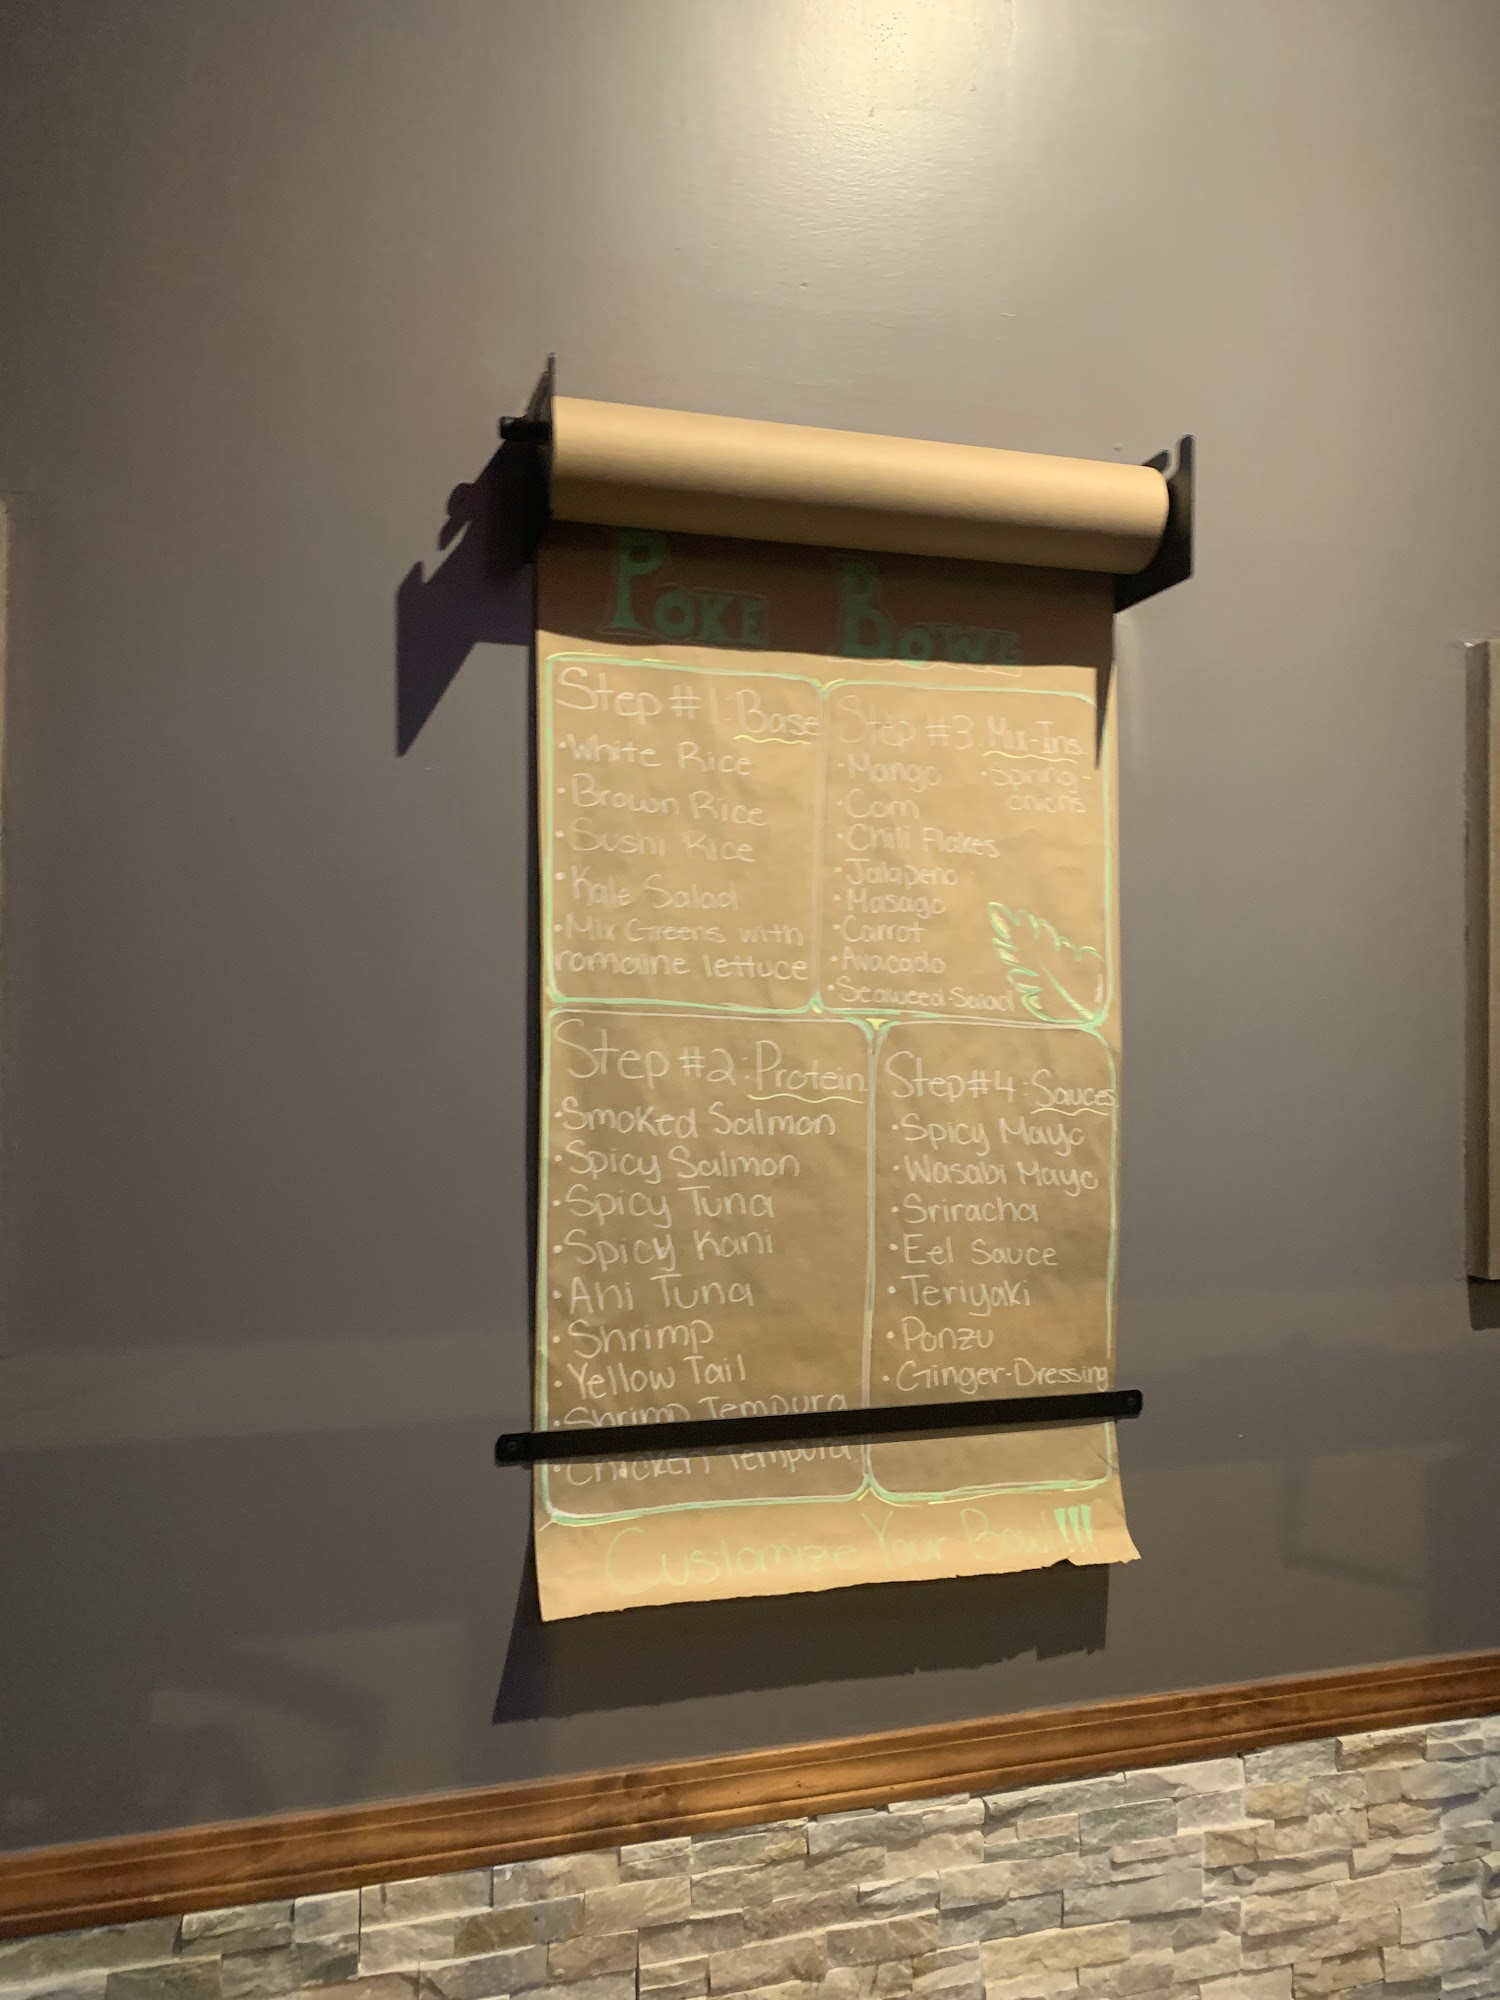 POKE BOWL
Step #1: Base
• White Rice
• Brown Rice
• Sushi Rice
• Kale Salad
• Mix Greens with
romaine lettuce
Step #2: Protein
• Smoked Salmon
• Spicy Salmon
• Spicy Tuna
• Spicy Kani
• Ahi Tuna
• Shrimp
• Yellow Tail
• Shrimp Tempura
• Chicken Tempura
Step #3: Mix-Ins
• Mango
• Corn
• Chili Flakes
• Jalapeno
• Masago
• Carrot
• Avacado
• Seaweed-Salad
• Spring-
onions
Step #4: Sauces
• Spicy Mayo
• Wasabi Mayo
• Sriracha
• Eel Sauce
• Teriyaki
• Ponzu
• Ginger-Dressing
Customize Your Bowl!!!